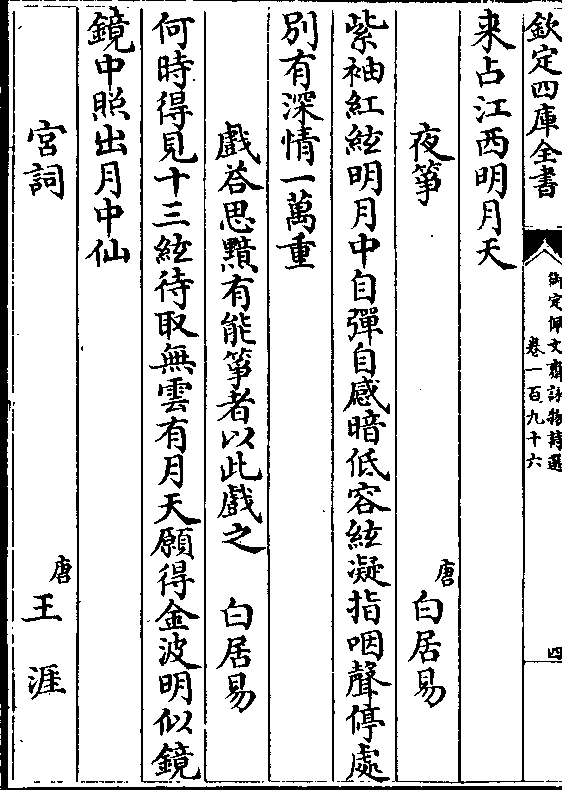 欽定四庫全書
御定佩文齋詠物詩選
卷一百九十六
四
来占江西明月天
夜箏
唐白居易
紫袖紅絃明月中自彈自感暗低容絃凝指咽聲停處
別有深情一萬重
戲答思黯有能箏者以此戲之
白居易
何時得見十三絃待取無雲有月天願得金波明似鏡
鏡中照出月中仙
宮詞
唐王涯